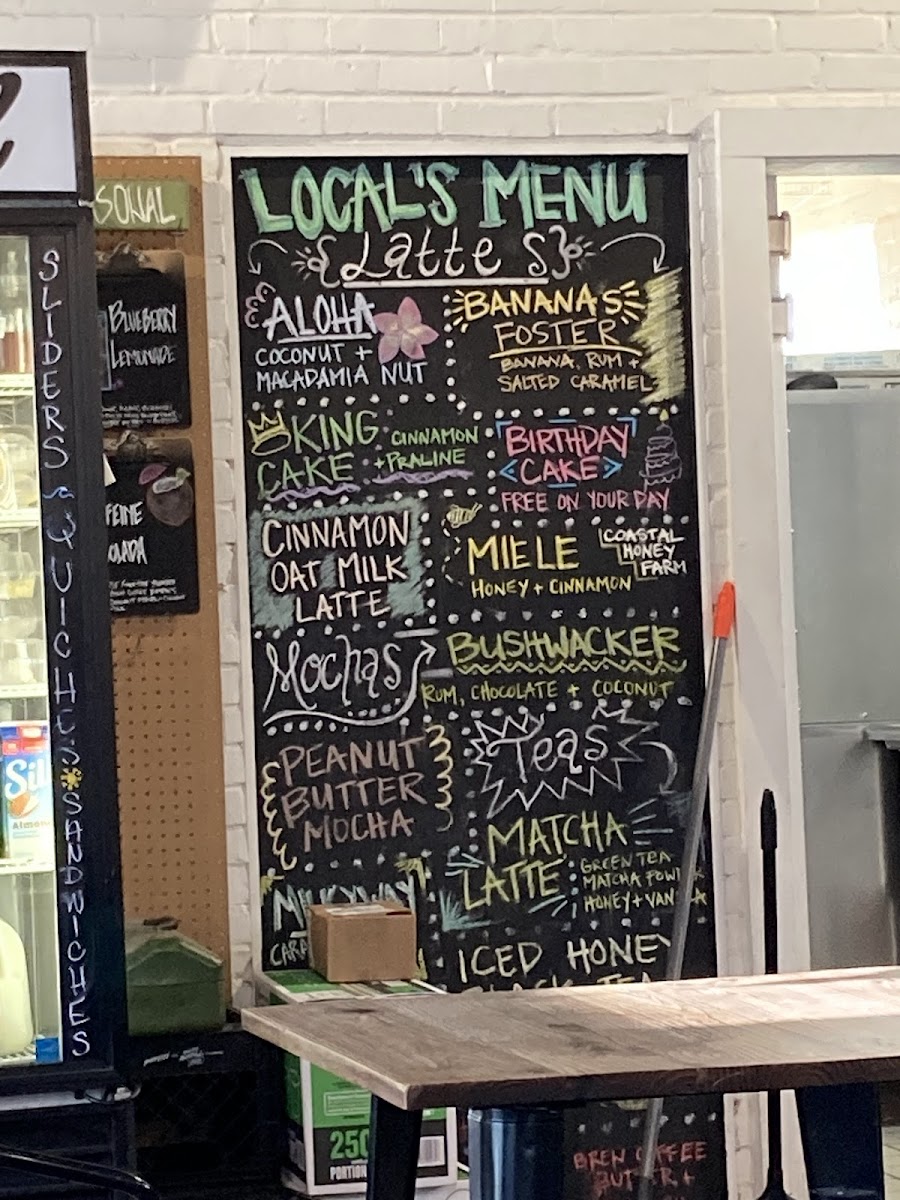 LOCAL'S MENU
Lattes
ALOHA
COCONUT +
MACADAMIA NUT
BANANAS
FOSTER
BANANA, RUM +
SALTED CARAMEL
KING
CAKE
CINNAMON
+PRALINE
BIRTHDAY
CAKE
FREE ON YOUR DAY
CINNAMON
OAT MILK
LATTE
MIELE
HONEY + CINNAMON
COASTAL
HONEY
FARM
Mochas
BUSHWACKER
RUM, CHOCOLATE + COCONUT
PEANUT
BUTTER
MOCHA
Teas
MATCHA
LATTE
GREEN TEA
MATCHA
HONEY +
MILKYWAY
ICED HONEY
BREW COFFEE
SLIDERS QUICHES SANDWICHES
BLUEBERRY
LEMONADE
Sil
Almon
250
PORTION